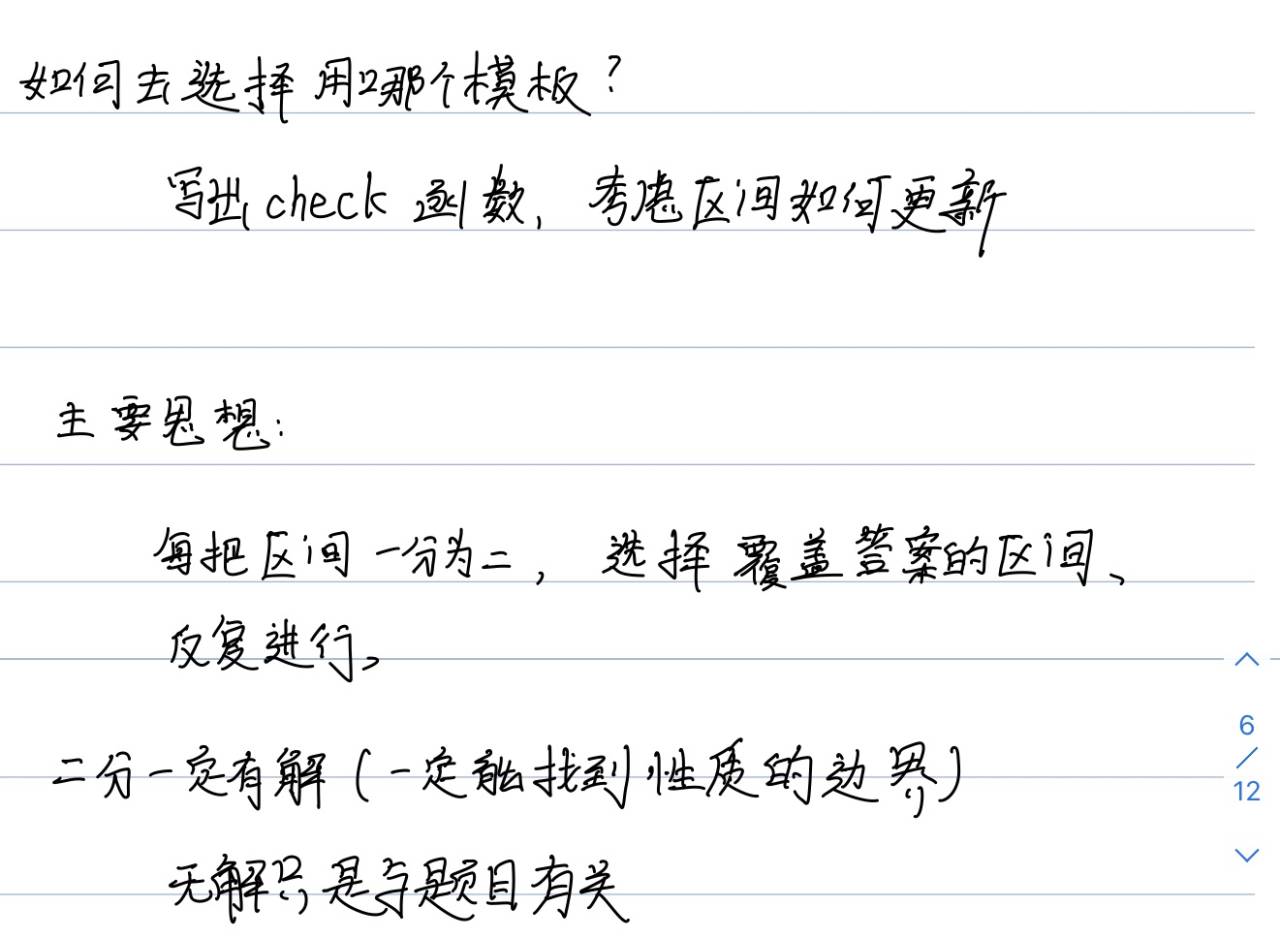 如何去选择用哪个模板？
写出check函数，考虑区间如何更新
主要思想：
每把区间一分为二，选择覆盖答案的区间、
反复进行。
6
/
12
二分一定有解（一定能找到性质的边界）
无解只是与题目有关